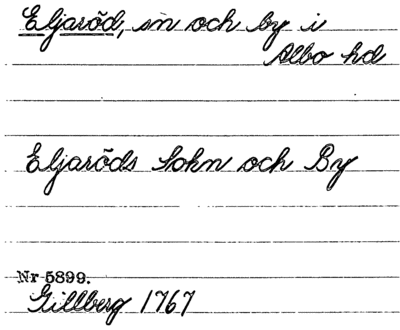 Eljaröd, sn och by i
Albo hd
Eljaröds Sokn och By
Nr 5899.
Gillberg 1767